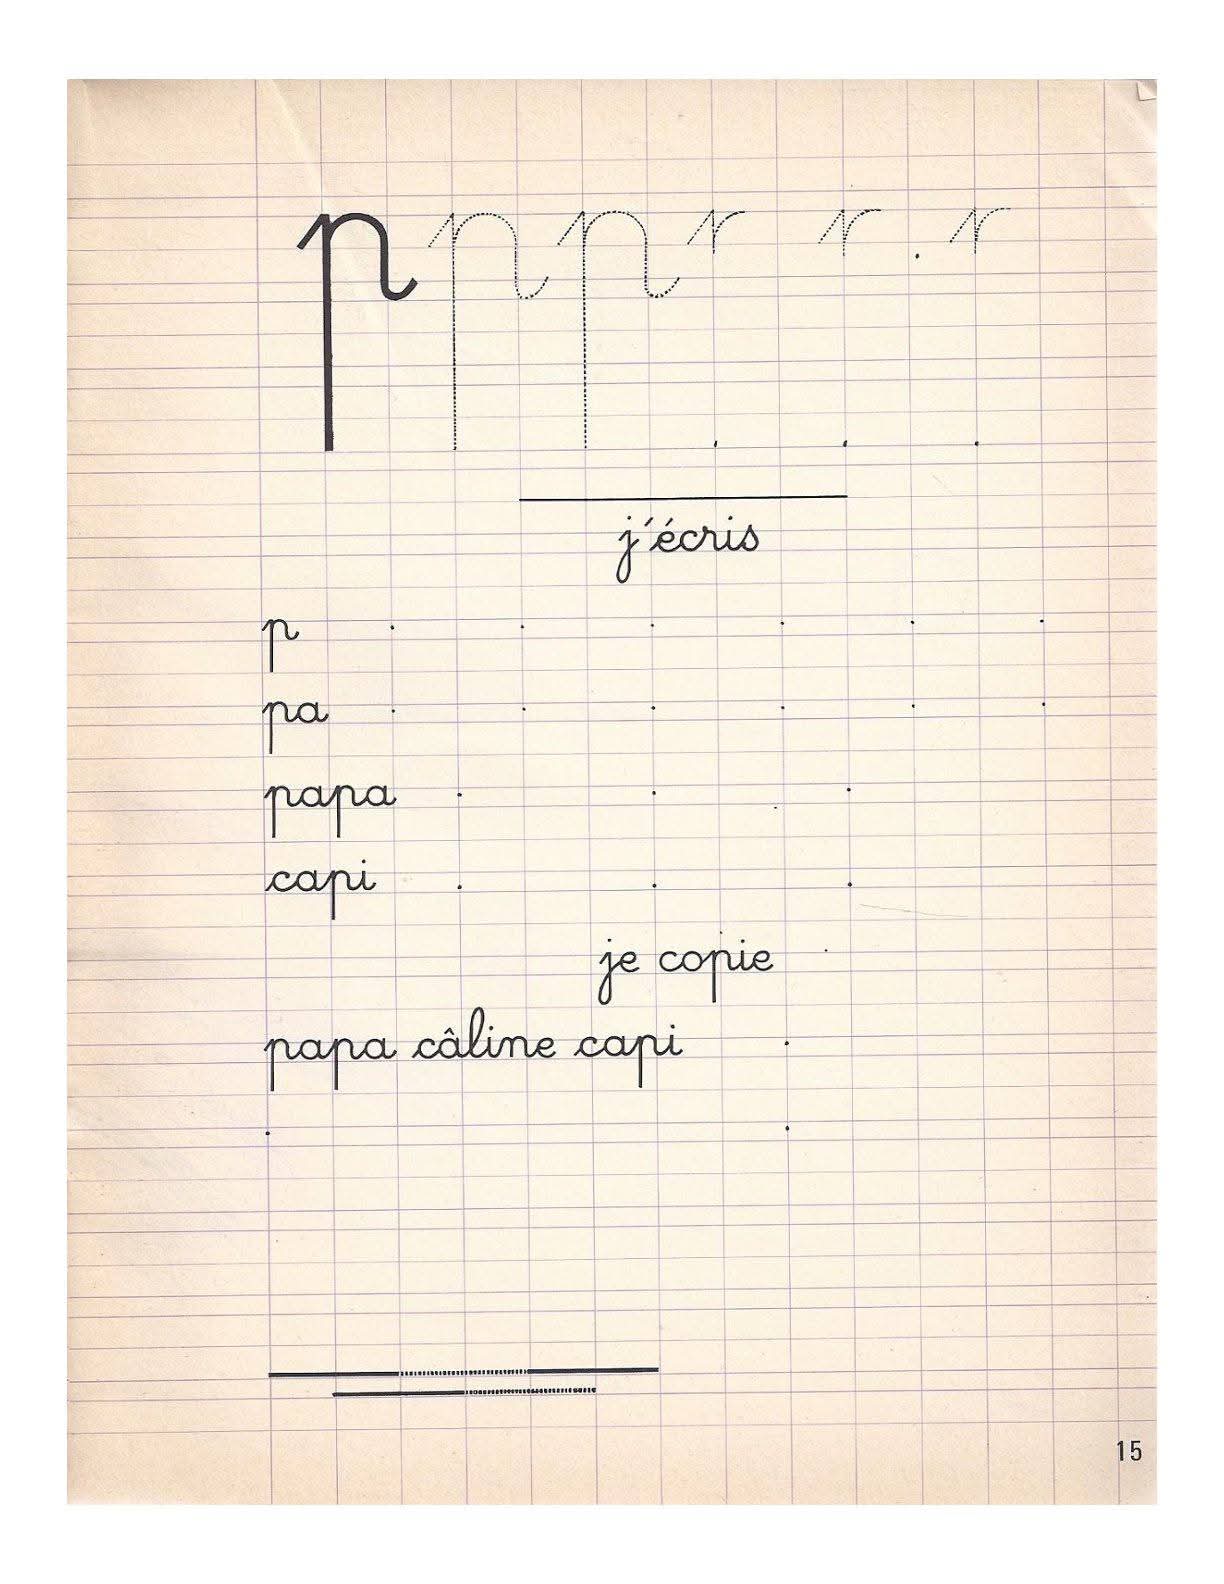 p p p
j'écris
p
pa
papa
capi
je copie
papa câline capi
15